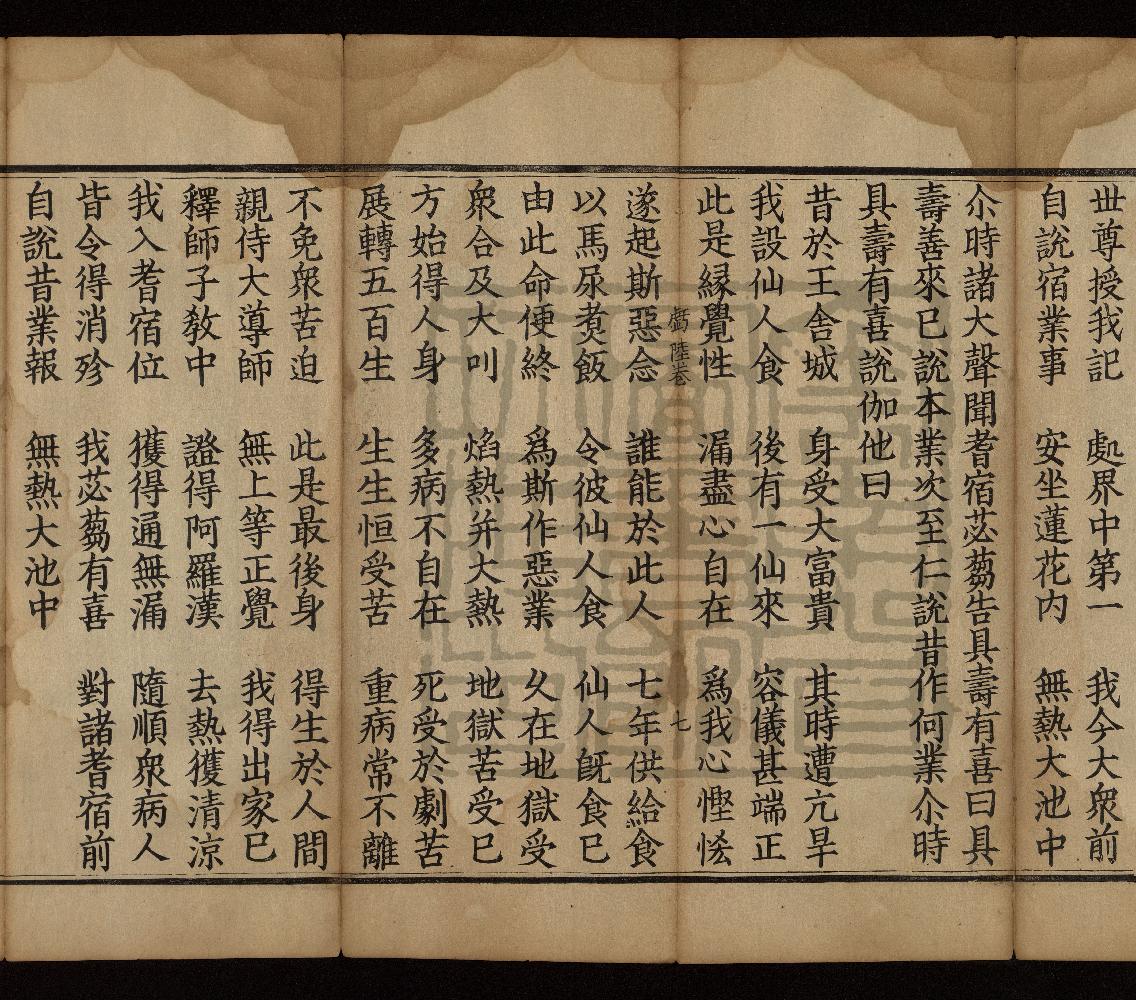 世尊授我記　處界中第一　我今大衆前
自說宿業事　安坐蓮花内　無熱大池中
尒時諸大聲聞耆宿苾蒭告具壽有喜曰具
壽善來已說本業次至仁說昔作何業尒時
具壽有喜說伽他曰
昔於王舍城　身受大富貴　其時遭亢旱
我設仙人食　後有一仙來　容儀甚端正
此是緣覺性　漏盡心自在　爲我心慳悋
陸卷　七
遂起斯惡念　誰能於此人　七年供給食
以馬尿煑飯　令彼仙人食　仙人既食已
由此命便終　爲斯作惡業　久在地獄受
衆合及大叫　焰熱并大熱　地獄苦受已
方始得人身　多病不自在　死受於劇苦
展轉五百生　生生恒受苦　重病常不離
不免衆苦迫　此是最後身　得生於人間
親侍大導師　無上等正覺　我得出家已
釋師子教中　證得阿羅漢　去熱獲清涼
我入耆宿位　獲得通無漏　隨順衆病人
皆令得消殄　我苾蒭有喜　對諸耆宿前
自說昔業報　無熱大池中